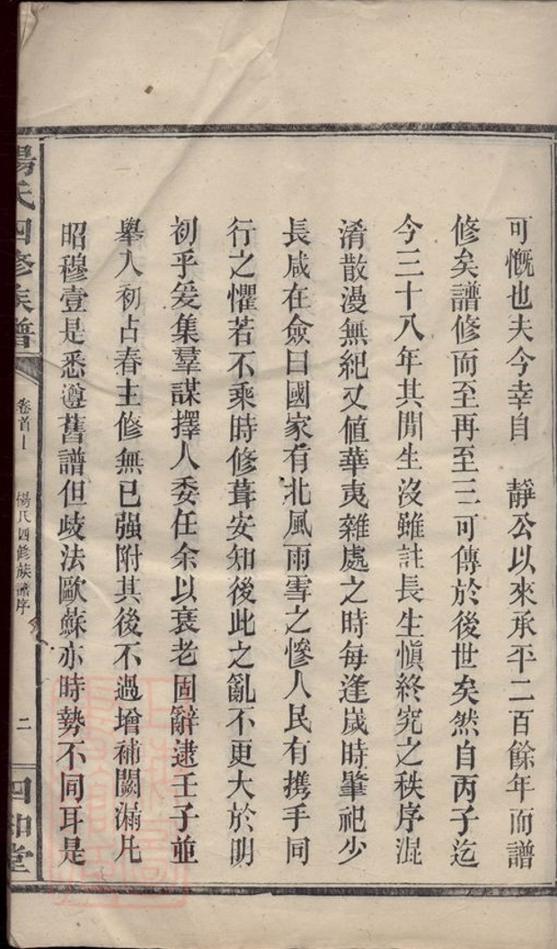 可慨也夫今幸自　靜公以來承平二百餘年而譜
修矣譜修而至再至三可傳於後世矣然自丙子迄
今三十八年其閒生沒雖註長生愼終究之秩序混
淆散漫無紀又值華夷雜處之時每逢嵗時肇祀少
長咸在僉曰國家有北風雨雪之慘人民有携手同
行之懼若不乘時修葺安知後此之亂不更大於明
初乎爰集羣謀擇人委任余以衰老固辭逮壬子並
舉人初占春主修無已强附其後不過增補闕漏凡
昭穆壹是悉遵舊譜但歧法歐蘇亦時勢不同耳是
楊氏四修族譜
卷首上
楊氏四修族譜序
二
四知堂